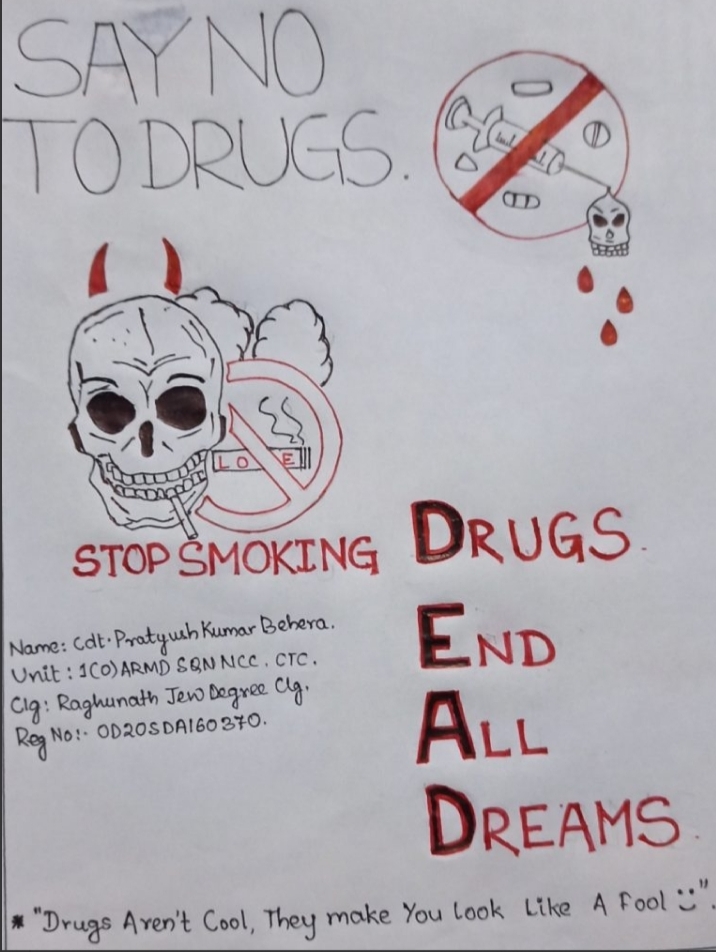 SAY NO
TO DRUGS.
LOVE
STOP SMOKING
DRUGS.
END
ALL
DREAMS.
Name: Cdt. Pratyush Kumar Behera.
Unit : 1(O) ARMD SQN NCC. CTC.
Clg: Raghunath Jew Degree Clg.
Reg No:- OD20SDA160370.
* "Drugs Aren't Cool, They make You Look Like A Fool :)".